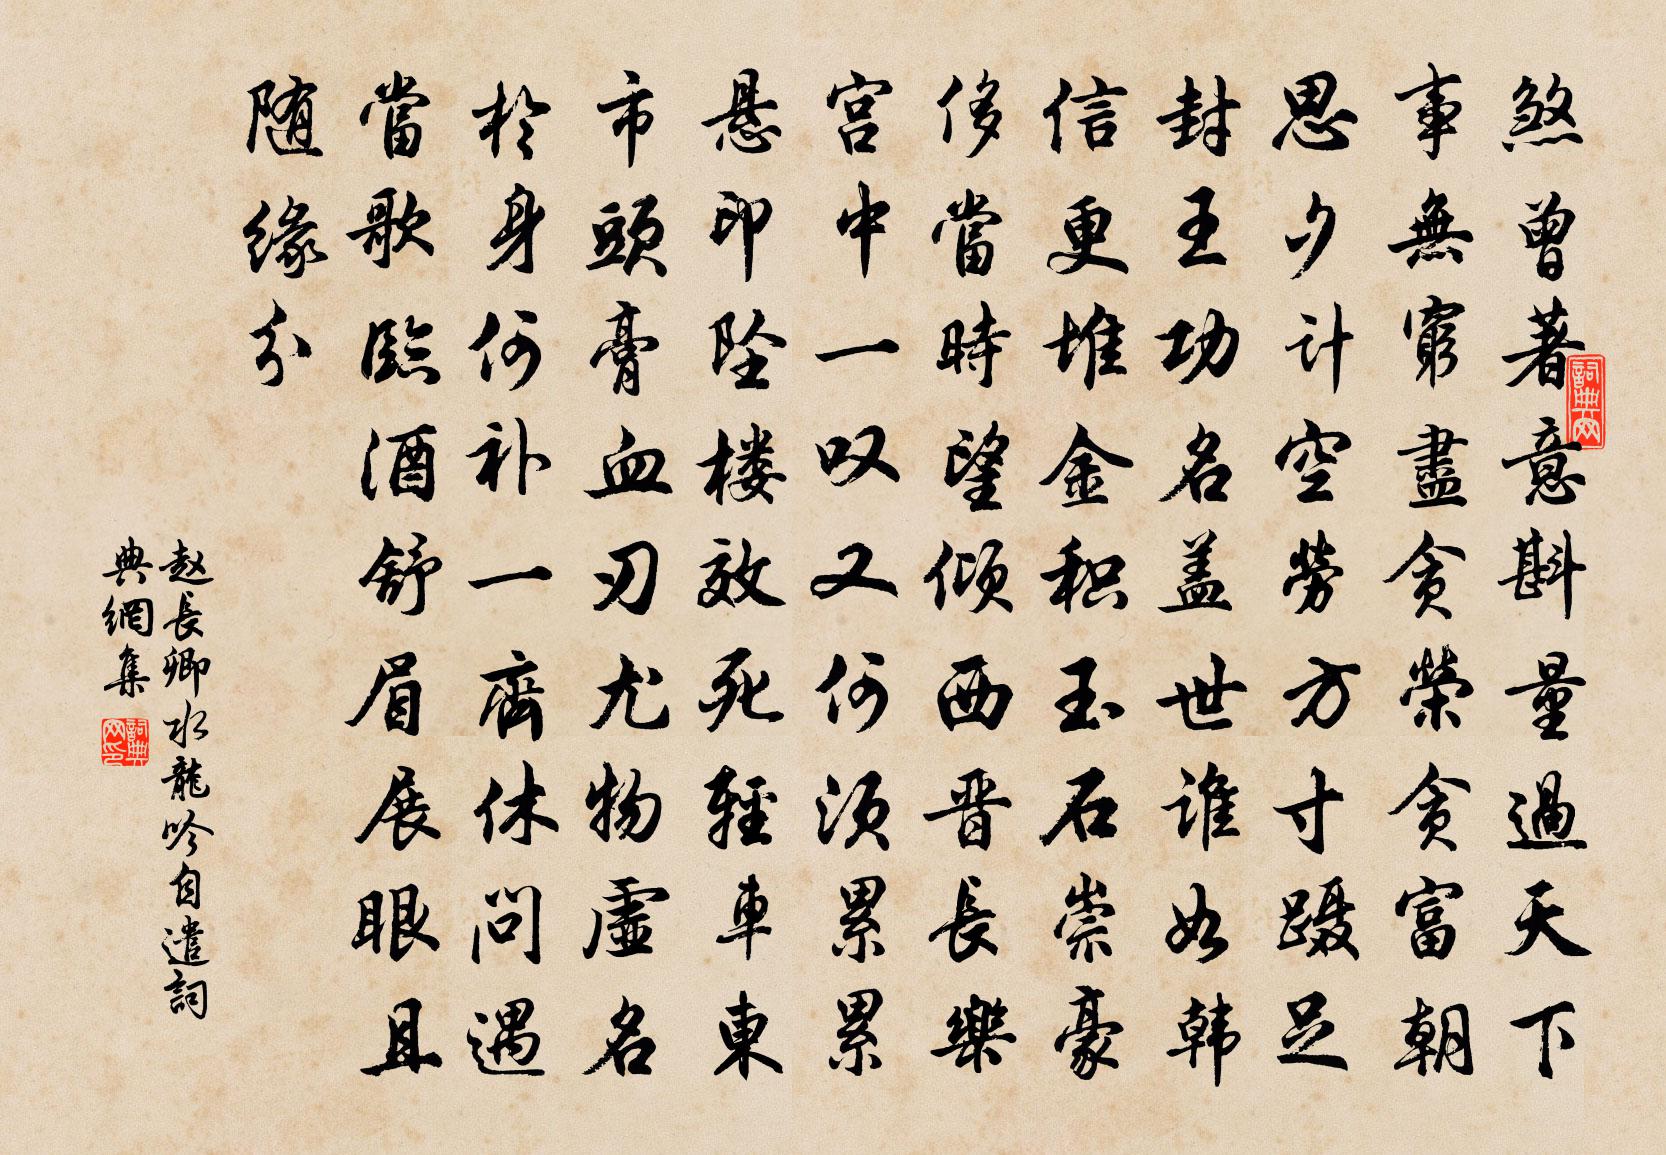 煞曾著意斟量過天下
事無窮盡貪榮貪富朝
思夕计空勞方寸蹑足
封王功名盖世谁如韩
信更堆金积玉石崇豪
侈當時望倾西晋長樂
宫中一叹又何须累累
悬印坠楼效死輕車東
市頭膏血刃尤物虚名
於身何补一齊休问遇
當歌臨酒舒眉展眼且
随缘分
赵長卿水龍吟自遣詞
典網集
詞典网
詞典网印